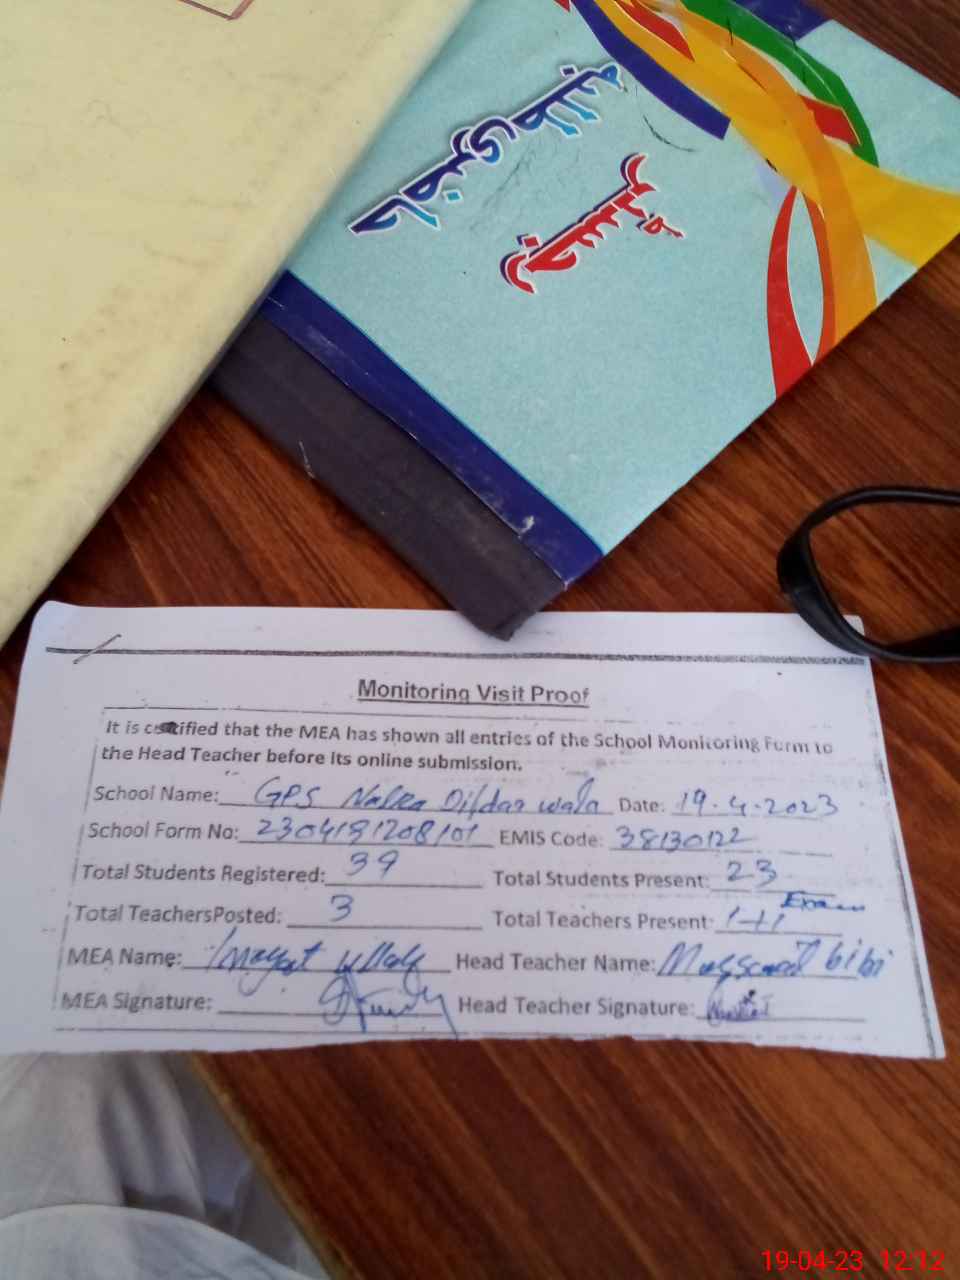 رجسٹر
Monitoring Visit Proof
It is certified that the MEA has shown all entries of the School Monitoring Form to
the Head Teacher before its online submission.
School Name: GPS Nalka Dildar wala Date: 19.4.2023
School Form No: EMIS Code: 38130122
Total Students Registered: 39 Total Students Present: 23
Total TeachersPosted: 3 Total Teachers Present: 1+1 Exam
MEA Name: Inayat ullah Head Teacher Name: bibi
MEA Signature: Head Teacher Signature:
19-04-23 12:12